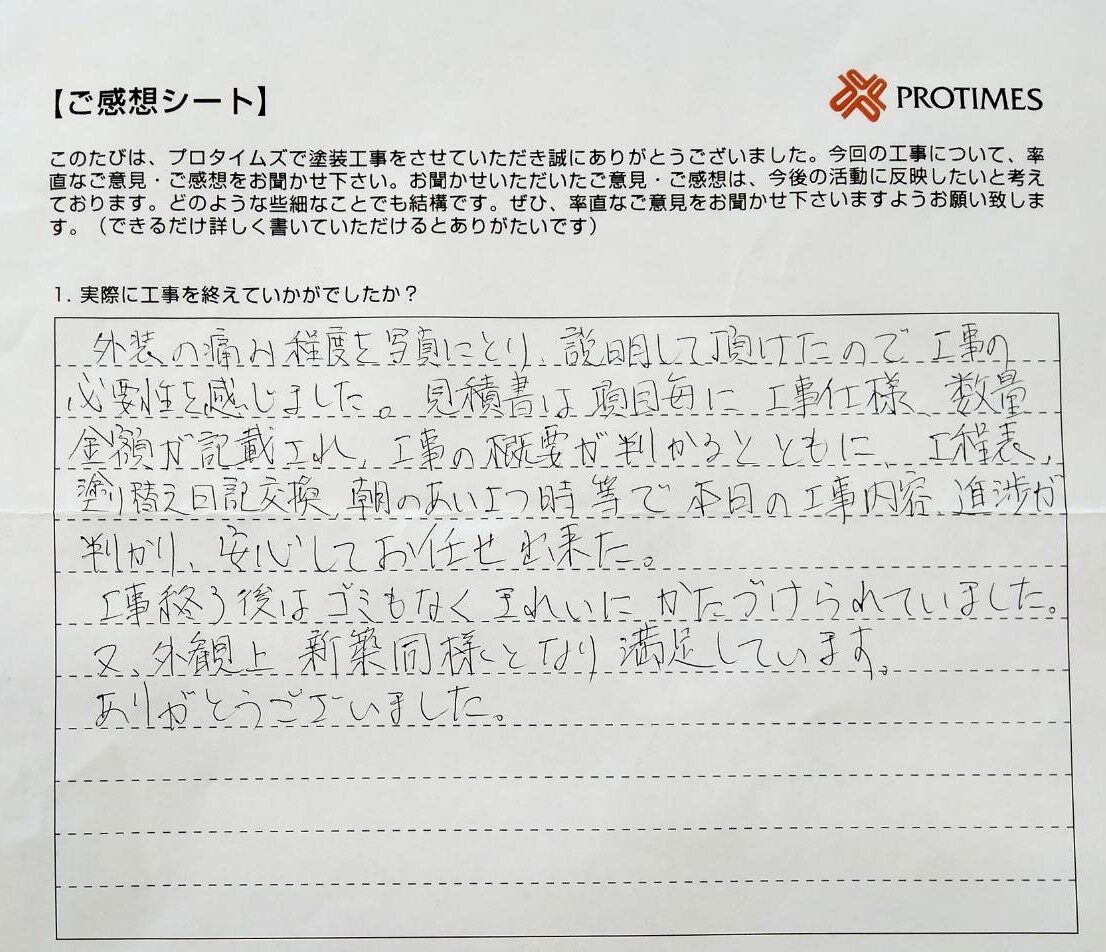 【ご感想シート】
PROTIMES
このたびは、プロタイムズで塗装工事をさせていただき誠にありがとうございました。今回の工事について、率
直なご意見・ご感想をお聞かせ下さい。お聞かせいただいたご意見・ご感想は、今後の活動に反映したいと考え
ております。どのような些細なことでも結構です。ぜひ、率直なご意見をお聞かせ下さいますようお願い致しま
す。（できるだけ詳しく書いていただけるとありがたいです）
1. 実際に工事を終えていかがでしたか？
外装の痛み程度を写真にとり、説明して頂けたので工事の
必要性を感じました。見積書は項目毎に工事仕様、数量
金額が記載され、工事の概要が判かるとともに、工程表、
塗り替え日記交換、朝のあいさつ時等で本日の工事内容、進渉が
判かり、安心してお任せ出来た。
工事終了後はゴミもなくきれいにかたづけられていました。
又、外観上新築同様となり満足しています。
ありがとうございました。